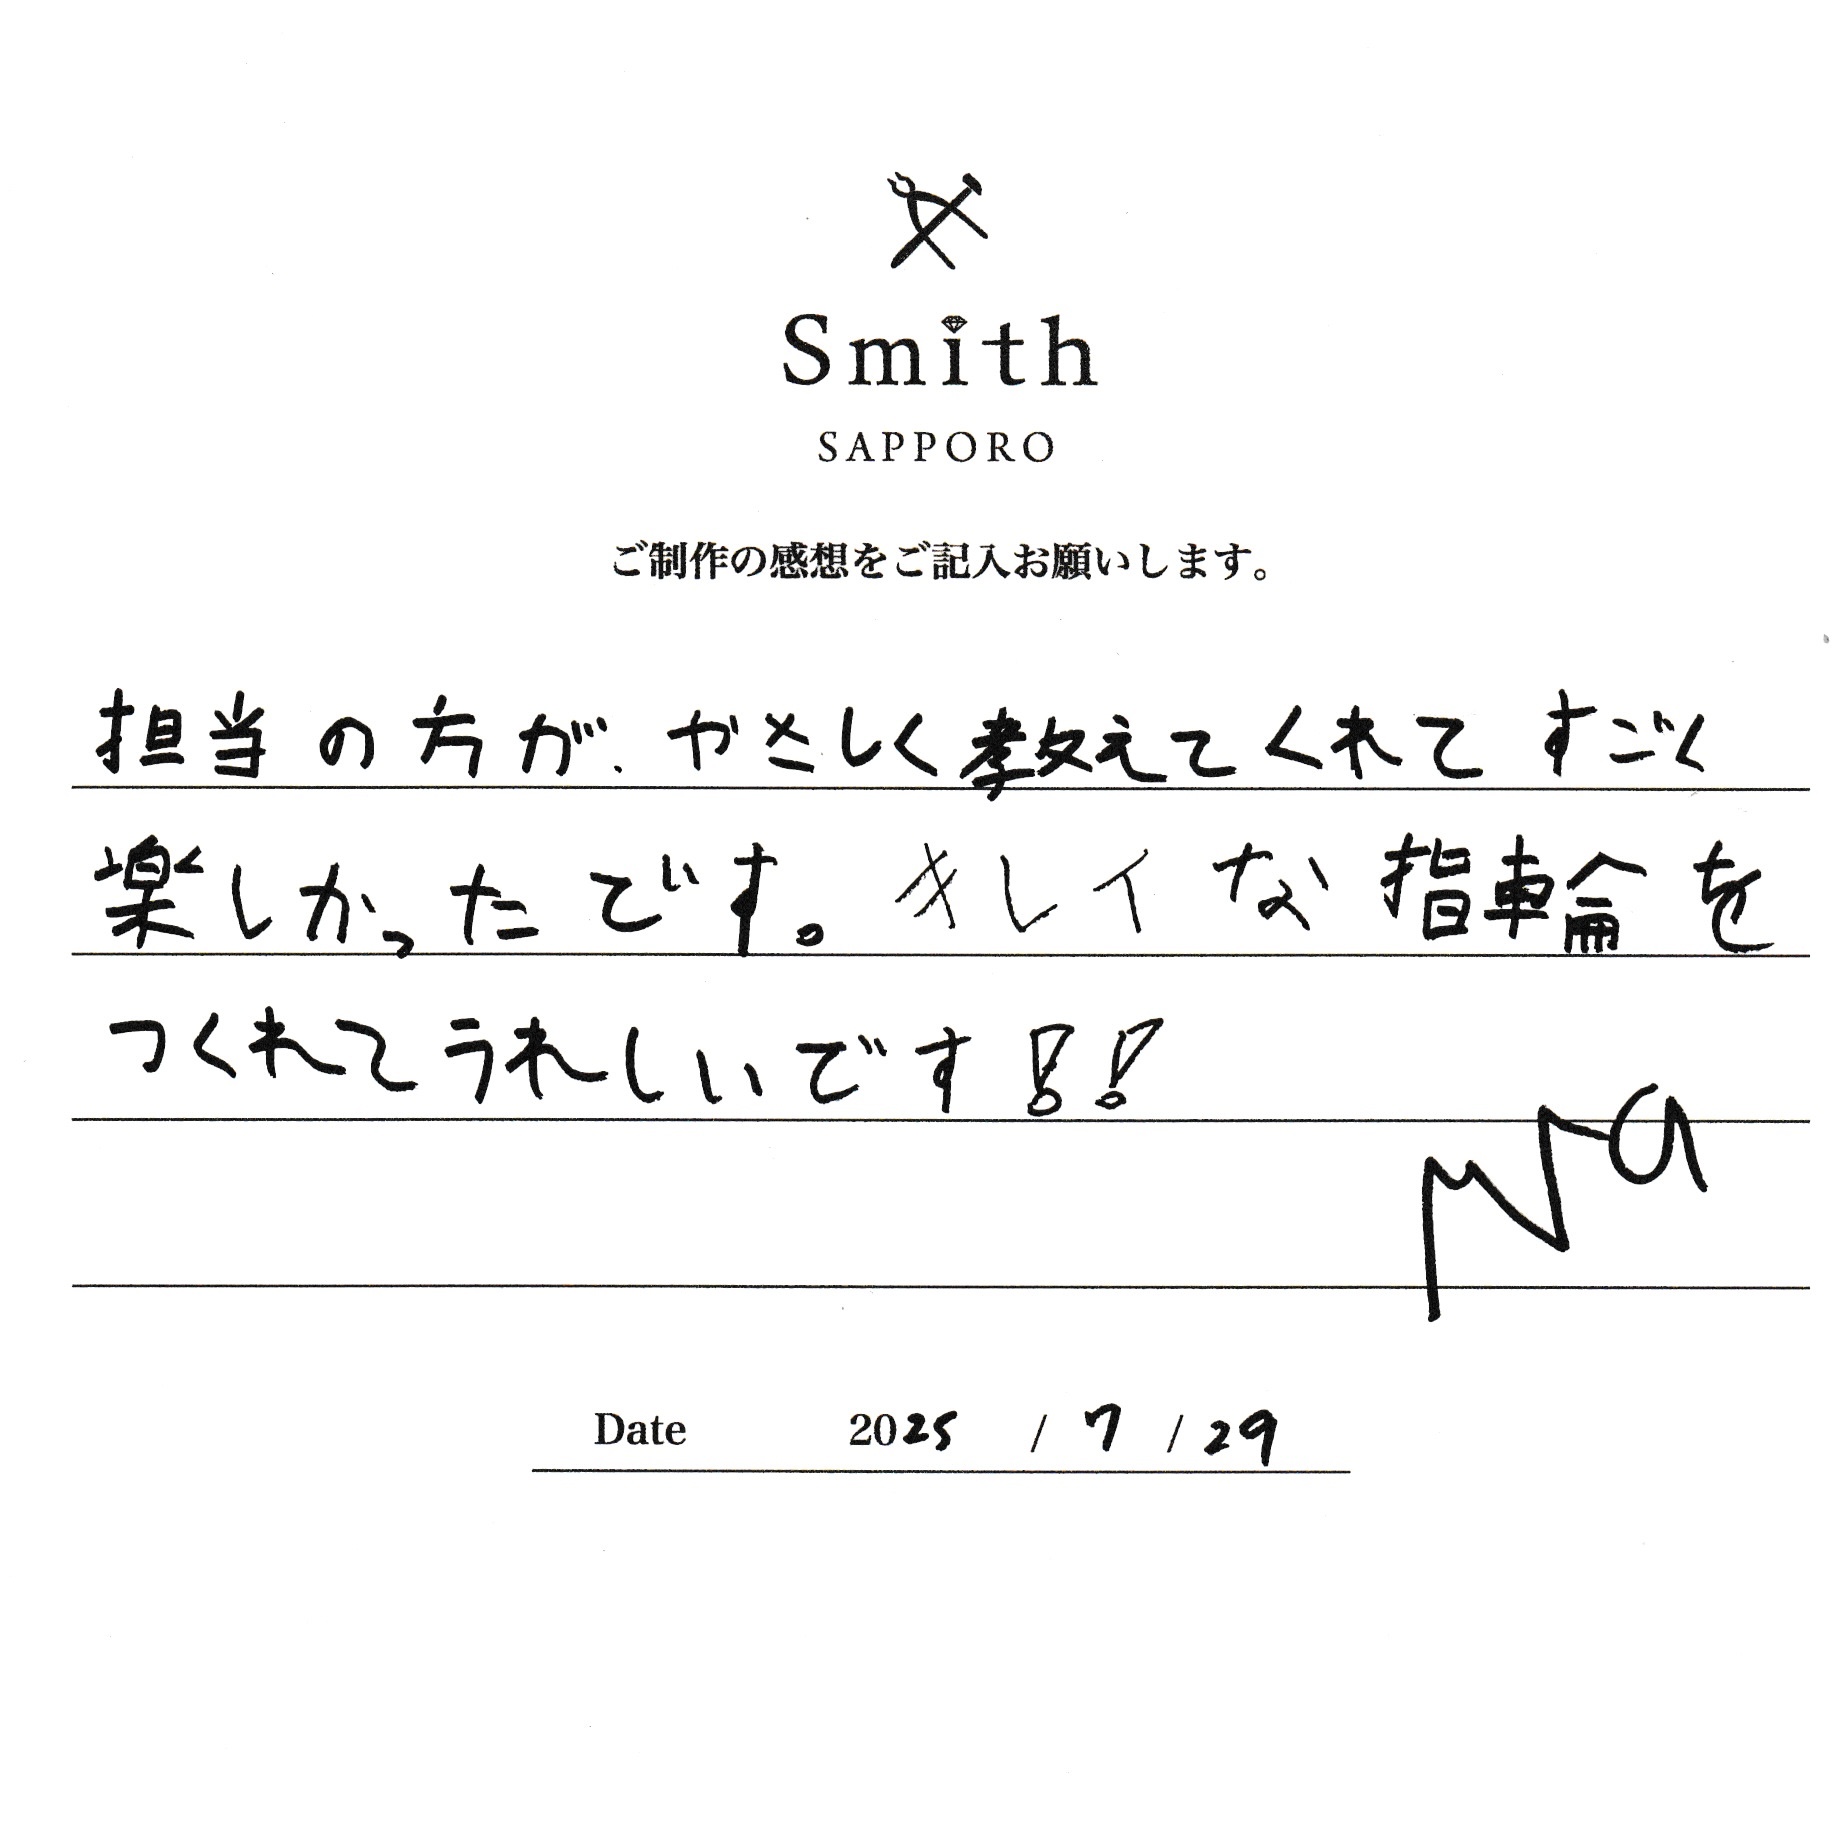 Smith
SAPPORO
ご制作の感想をご記入お願いします。
担当の方が、やさしく教えてくれてすごく
楽しかったです。キレイな指輪を
つくれてうれしいです!!
Date 2025 / 7 / 29